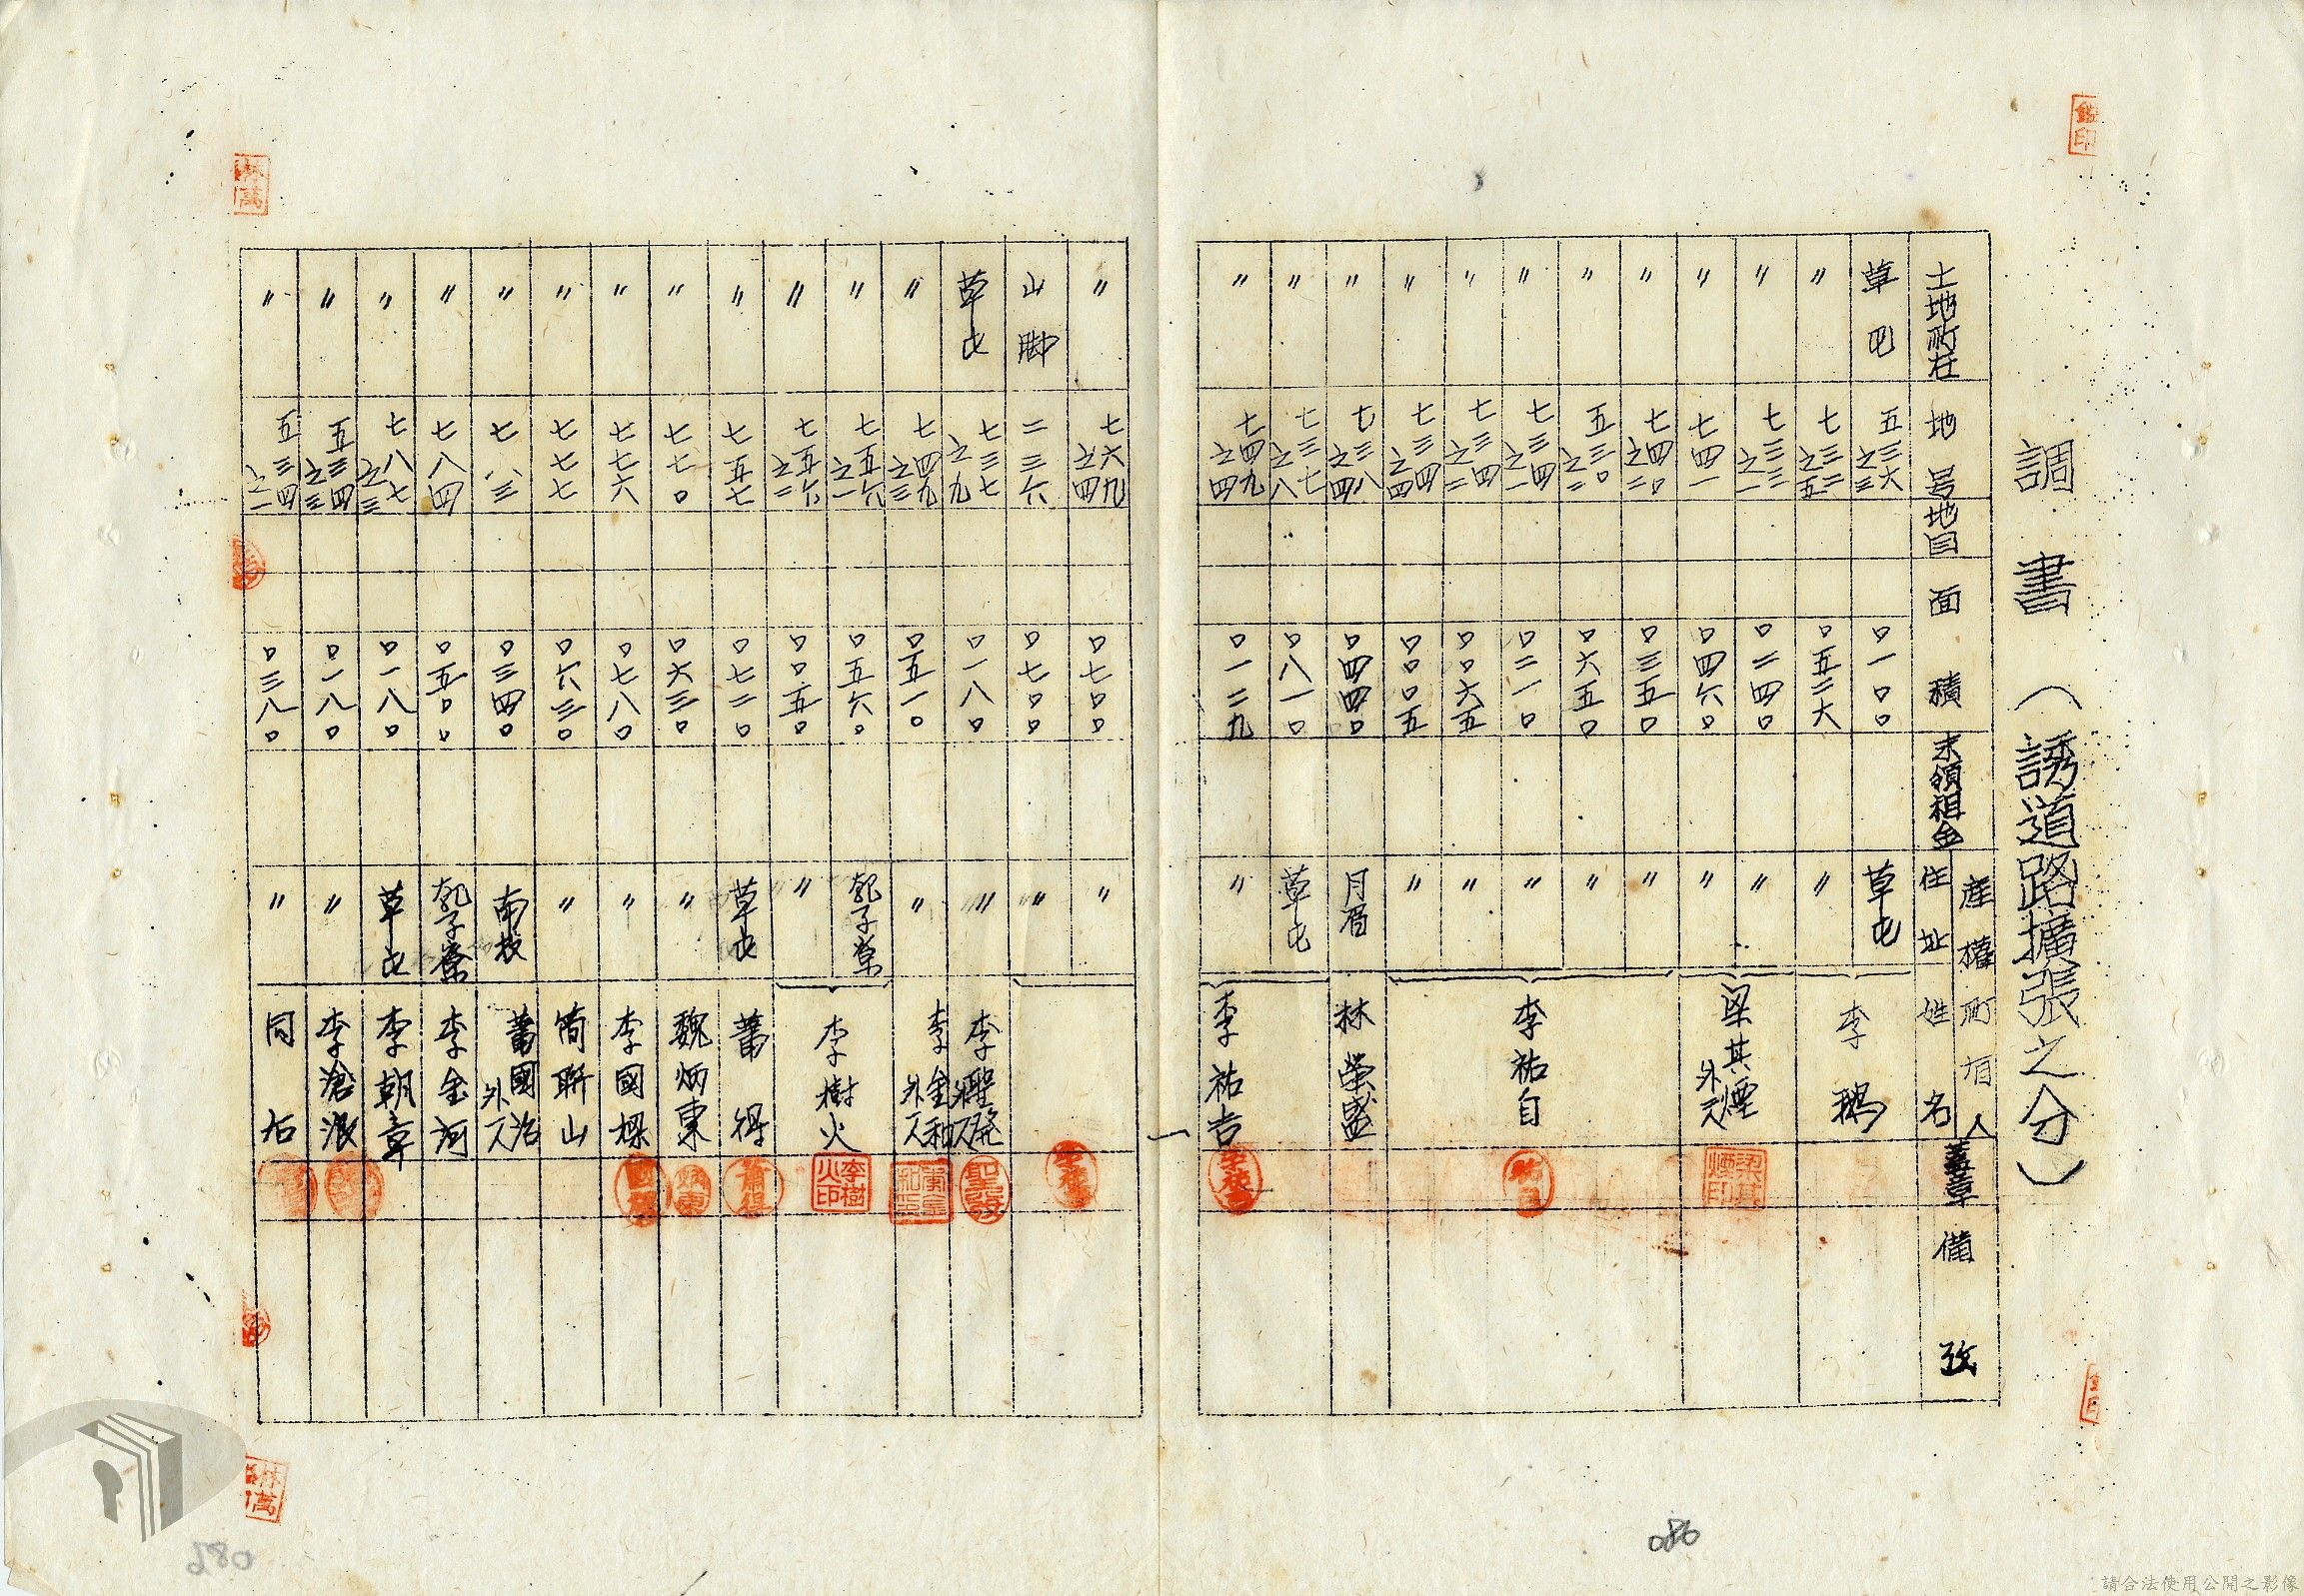 調書(誘道路擴張之分)
土地所在 地号 地目 面積 未領租金 產權所有人 住址 姓名 蓋章 備攷
草屯 五三六之三 〇一〇〇 草屯 李鵝
〃 七三二之五 〇五二六 〃
〃 七三三之一 〇二四〇 〃 梁其煙外一人
〃 七四一 〇四六〇 〃
〃 七四〇之二 〇三五〇 〃 李祐自
〃 五三〇之二 〇六五〇 〃
〃 七三四之一 〇二一〇 〃
〃 七三四之二 〇〇六五 〃
〃 七三四之四 〇〇〇五 〃
〃 七三八之四 〇四四〇 月眉 林榮盛
〃 七三七之八 〇八一〇 草屯 李祐吉
〃 七四九之四 〇一二九 〃
〃 七六九之四 〇七〇〇 〃
山腳 二三六 〇七〇〇 〃
草屯 七三七之九 〇一八〇 〃 李聖發
〃 七四九之三 〇五一〇 〃 李金和外人
〃 七五六之一 〇五六〇 李樹火
〃 七五六之二 〇〇五〇 〃
〃 七五七 〇七二〇 草屯 蕭得
〃 七七〇 〇六三〇 〃 魏炳東
〃 七七六 〇七八〇 〃 李國樑
〃 七七七 〇六三〇 〃 簡聯山
〃 七八三 〇三四〇 南投 蕭國治外人
〃 七八四 〇五〇〇 李金河
〃 七八七之三 〇一八〇 草屯 李朝章
〃 五三四之三 〇一八〇 〃 李滄浪
〃 五三四之一 〇三八〇 〃 同右
梁其煙印
李樹火印
聖發
蕭得
炳東
林萬
林萬
080
請合法使用公開之影像